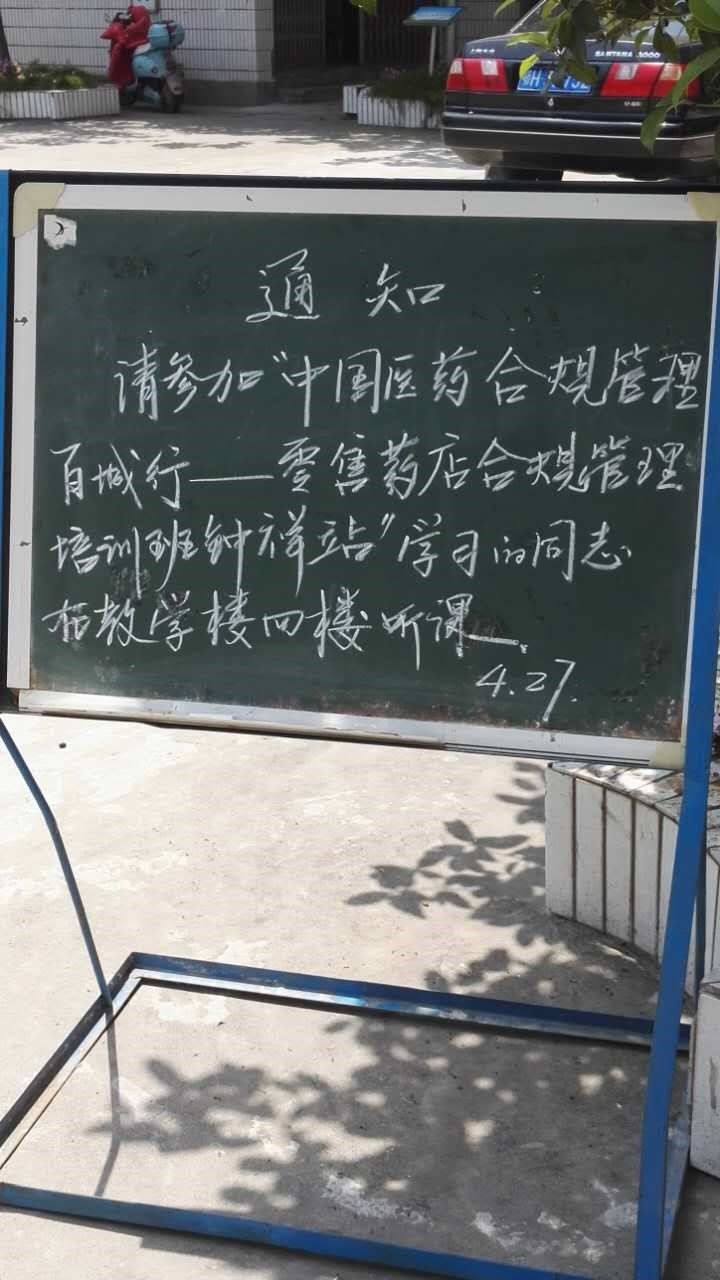 SANTANA 3000
通 知
请参加“中国医药合规管理
百城行——零售药店合规管理
培训班钟祥站”学习的同志
在教学楼四楼听课。
4.27.